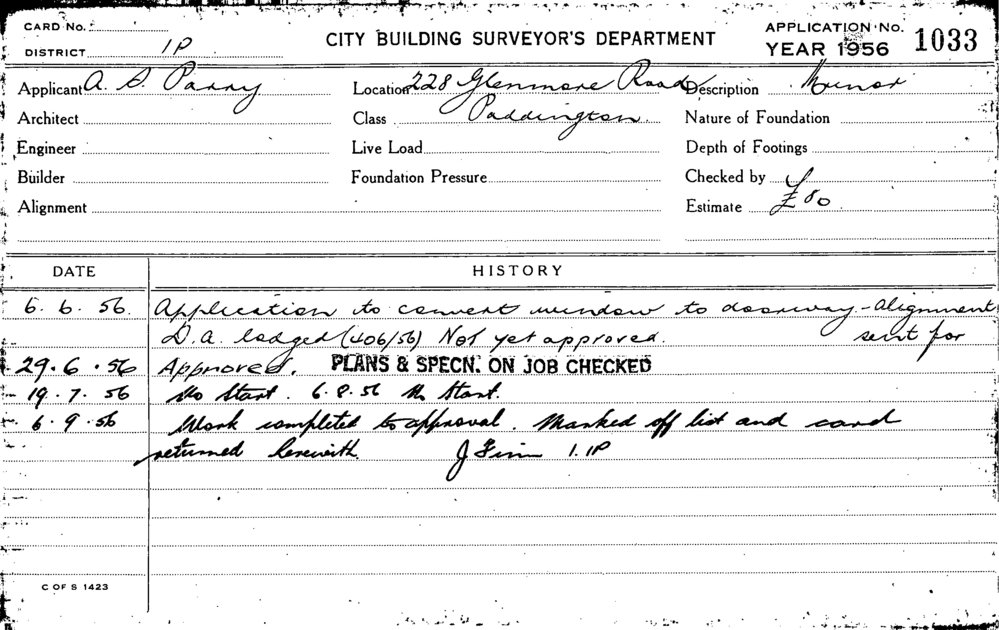 CARD No.
DISTRICT 1P
CITY BUILDING SURVEYOR'S DEPARTMENT
APPLICATION No.
YEAR 1956 1033
Applicant A. S. Parry Location 228 Glenmore Road Description Minor
Architect Class Paddington. Nature of Foundation
Engineer Live Load Depth of Footings
Builder Foundation Pressure Checked by
Alignment Estimate £80
DATE HISTORY
6. 6. 56. Application to convert window to doorway - Alignment
D.A. lodged (406/56) Not yet approved. sent for
29.6.56 Approved. PLANS & SPECN. ON JOB CHECKED
19.7.56 No Start. 6.8.56 No Start.
6.9.56 Work completed to approval. Marked off list and card
returned herewith. J Finn 1.1P
C OF S 1423